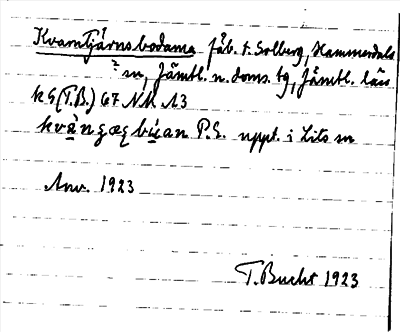 Kvarntjärnsbodarna fäb. t. Solberg, Hammerdals
sn, Jämtl. n. doms. tg, Jämtl. län
k G (T.B.) 67 NM 13
P.E. uppt. i Lits sn
Anv. 1923
T. Bucht 1923